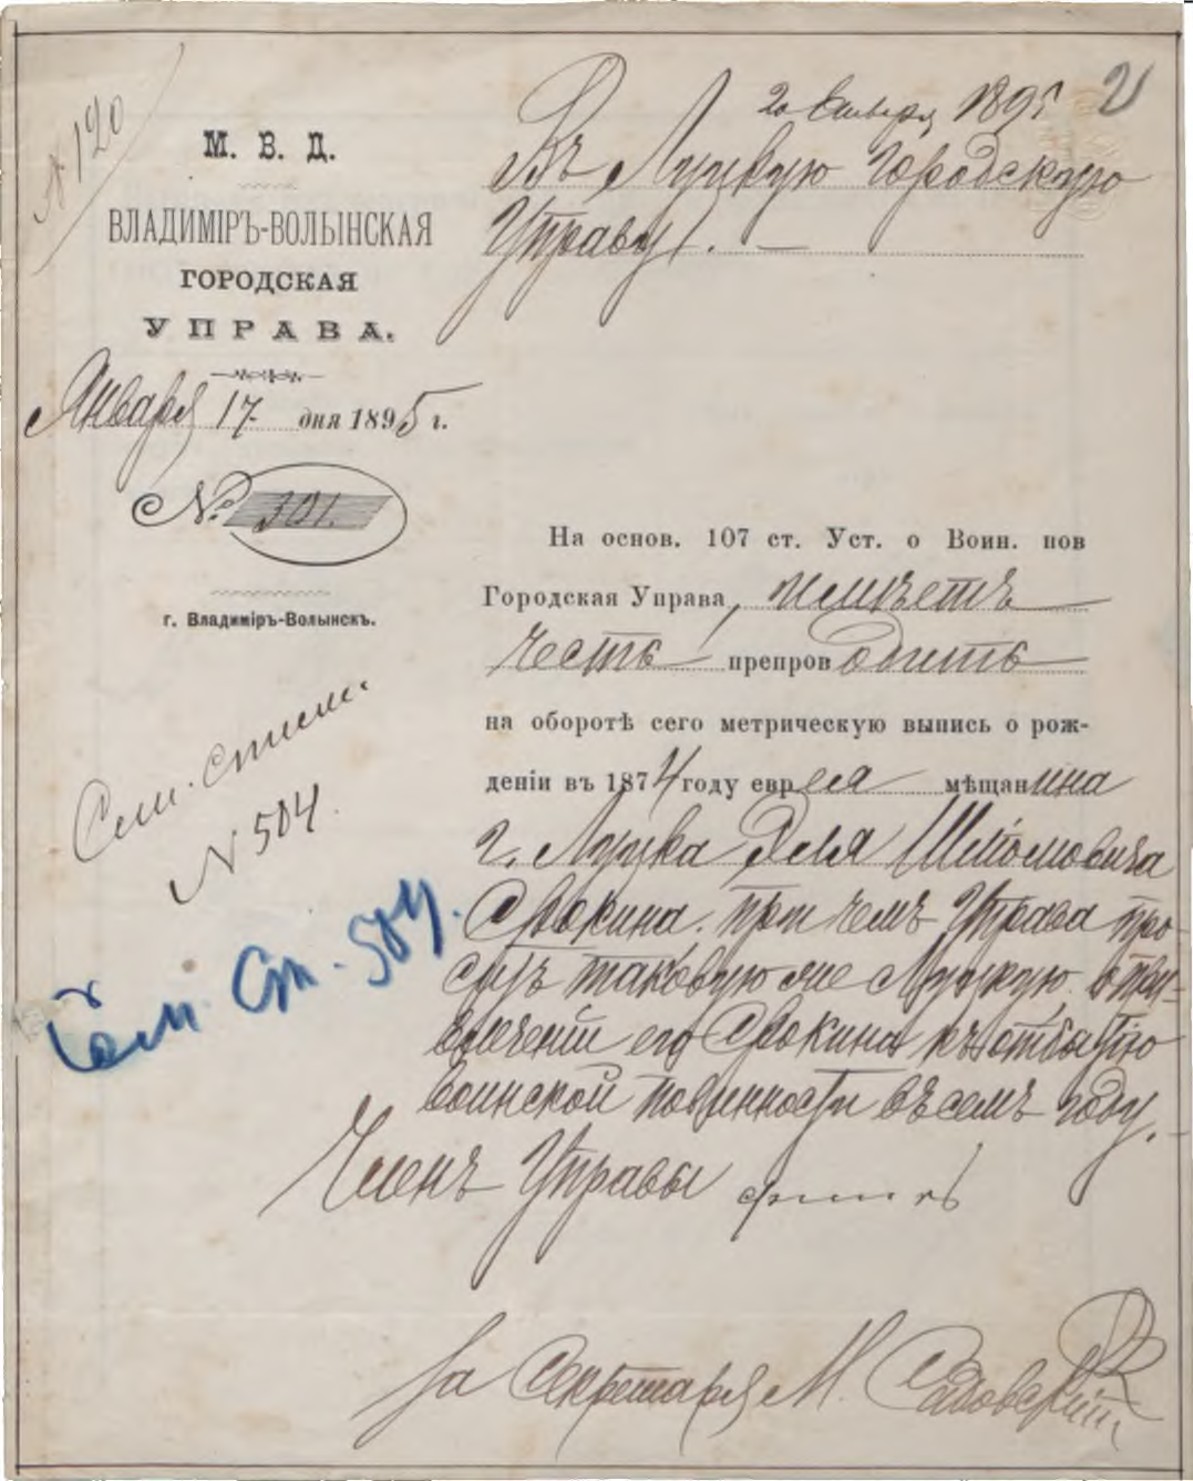 № 120
М. В. Д.
ВЛАДИМІРЪ-ВОЛЫНСКАЯ
ГОРОДСКАЯ
УПРАВА.
Января 17 дня 1895 г.
№ 301.
г. Владиміръ-Волынскъ.
20 Января 1895
2
Въ Луцкую Городскую
Управу. —
На основ. 107 ст. Уст. о Воин. пов
Городская Управа, имѣетъ
честь препроводить
на оборотѣ сего метрическую выпись о рож-
деніи въ 1874 году еврея мѣщанина
г. Луцка Эля Шлiомовича
Сокина. При чемъ Управа про-
ситъ таковую же Луцкую, о при-
влеченіи его Сокина къ отбытію
воинской повинности въ семъ году.
Членъ Управы
За Секретаря М. Садовскій
Сем. спис.
№ 504
Сем. Сп. 504.